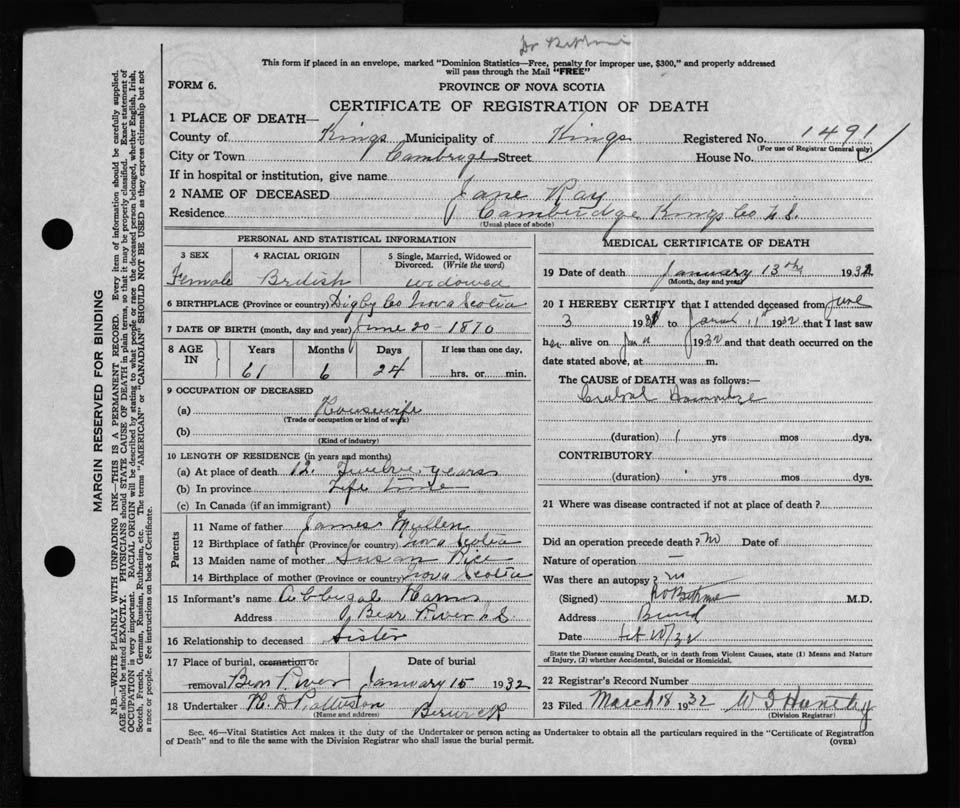 Dr
This form if placed in an envelope, marked "Dominion Statistics—Free, penalty for improper use, $300," and properly addressed
will pass through the Mail "FREE"
FORM 6.
PROVINCE OF NOVA SCOTIA
CERTIFICATE OF REGISTRATION OF DEATH
1 PLACE OF DEATH—
County of Kings Municipality of Kings Registered No. 1491
(For use of Registrar General only)
City or Town Cambryge Street House No.
If in hospital or institution, give name
2 NAME OF DECEASED Jane Ray
Residence Camberdge Kings Co N.S.
(Usual place of abode)
MARGIN RESERVED FOR BINDING
N.B.—WRITE PLAINLY WITH UNFADING INK—THIS IS A PERMANENT RECORD. Every item of information should be carefully supplied.
AGE should be stated EXACTLY. PHYSICIANS should STATE CAUSE OF DEATH in plain terms, so that it may be properly classified. Exact statement of
OCCUPATION is very important. RACIAL ORIGIN will be described by stating to what people or race the deceased person belonged, whether English, Irish,
Scotch, French, German, Russian, Ruthenian, etc. The terms "AMERICAN" or "CANADIAN" SHOULD NOT BE USED as they express citizenship but not
a race or people. Fee instructions on back of Certificate.
PERSONAL AND STATISTICAL INFORMATION
3 SEX 4 RACIAL ORIGIN 5 Single, Married, Widowed or
Divorced. (Write the word)
Female British widowed
6 BIRTHPLACE (Province or country) Digby Co Nova Scotia
7 DATE OF BIRTH (month, day and year) June 20 - 1870
8 AGE IN Years Months Days If less than one day,
61 6 24 hrs. or min.
9 OCCUPATION OF DECEASED
(a) Housewife
(Trade or occupation or kind of work)
(b)
(Kind of industry)
10 LENGTH OF RESIDENCE (in years and months)
(a) At place of death 12 Twelve years
(b) In province Life time
(c) In Canada (if an immigrant)
Parents
11 Name of father James Mullen
12 Birthplace of father (Province or country) Nova Scotia
13 Maiden name of mother Susan Rice
14 Birthplace of mother (Province or country) Nova Scotia
15 Informant's name Abbigal
Address Bear River N S
16 Relationship to deceased Sister
17 Place of burial, cremation or Date of burial
removal Bear River January 15 1932
18 Undertaker Berwick
(Name and address)
MEDICAL CERTIFICATE OF DEATH
19 Date of death January 13th 1932
(Month, day and year)
20 I HEREBY CERTIFY that I attended deceased from June
3 1931 to 1932 that I last saw
her alive on Jan 11 1932 and that death occurred on the
date stated above, at m.
The CAUSE OF DEATH was as follows:—
(duration) 1 yrs mos dys.
CONTRIBUTORY
(duration) yrs mos dys.
21 Where was disease contracted if not at place of death?
Did an operation precede death? no Date of
Nature of operation —
Was there an autopsy? no
(Signed) M.D.
Address
Date
State the Disease causing Death, or in death from Violent Causes, state (1) Means and Nature
of Injury, (2) whether Accidental, Suicidal or Homicidal.
22 Registrar's Record Number
23 Filed March 18 1932
(Division Registrar)
Sec. 46—Vital Statistics Act makes it the duty of the Undertaker or person acting as Undertaker to obtain all the particulars required in the "Certificate of Registration
of Death" and to file the same with the Division Registrar who shall issue the burial permit.
(OVER)